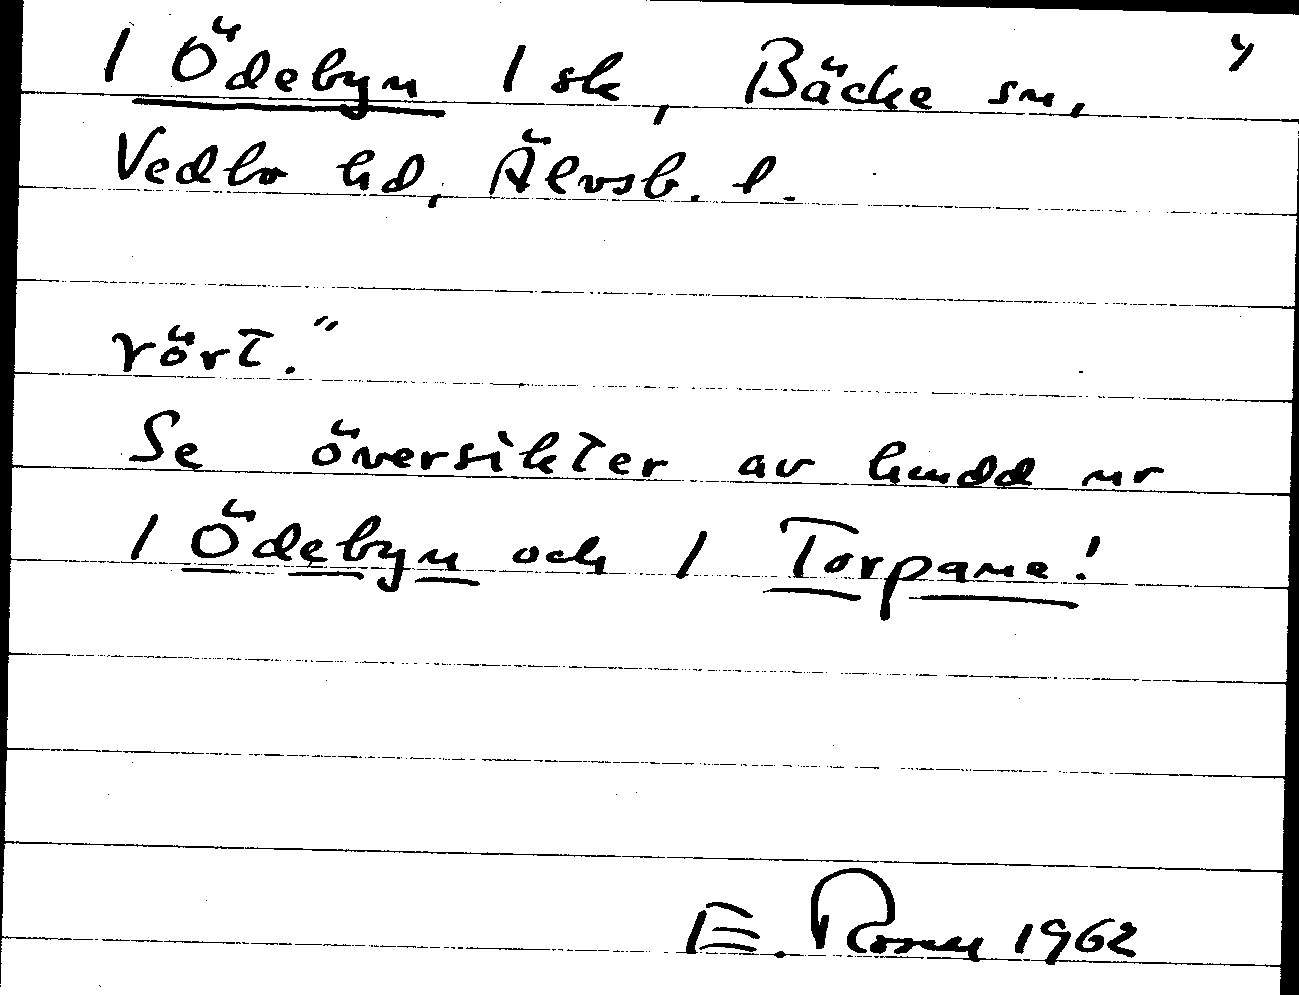 1 Ödebyn 1 sk, Bäcke sn, 4
Vedbo hd, Älvsb. l.
rört."
Se översikter av hmdd nr
1 Ödebyn och 1 Torpane!
E. 1962